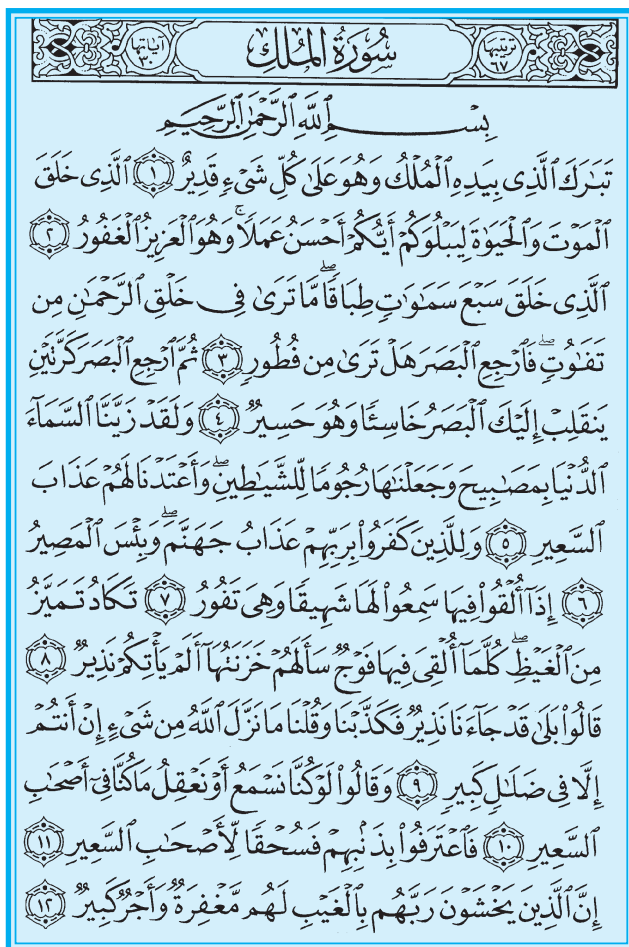 ترتيبها ٦٧ سُورَةُ الْمُلْكِ آياتها ٣٠
بِسْمِ ٱللَّهِ ٱلرَّحْمَٰنِ ٱلرَّحِيمِ
تَبَٰرَكَ ٱلَّذِى بِيَدِهِ ٱلْمُلْكُ وَهُوَ عَلَىٰ كُلِّ شَىْءٍ قَدِيرٌ ١ ٱلَّذِى خَلَقَ
ٱلْمَوْتَ وَٱلْحَيَوٰةَ لِيَبْلُوَكُمْ أَيُّكُمْ أَحْسَنُ عَمَلًا ۚ وَهُوَ ٱلْعَزِيزُ ٱلْغَفُورُ ٢
ٱلَّذِى خَلَقَ سَبْعَ سَمَٰوَٰتٍ طِبَاقًا ۖ مَّا تَرَىٰ فِى خَلْقِ ٱلرَّحْمَٰنِ مِن
تَفَٰوُتٍ ۖ فَٱرْجِعِ ٱلْبَصَرَ هَلْ تَرَىٰ مِن فُطُورٍ ٣ ثُمَّ ٱرْجِعِ ٱلْبَصَرَ كَرَّتَيْنِ
يَنقَلِبْ إِلَيْكَ ٱلْبَصَرُ خَاسِئًا وَهُوَ حَسِيرٌ ٤ وَلَقَدْ زَيَّنَّا ٱلسَّمَآءَ
ٱلدُّنْيَا بِمَصَٰبِيحَ وَجَعَلْنَٰهَا رُجُومًا لِّلشَّيَٰطِينِ ۖ وَأَعْتَدْنَا لَهُمْ عَذَابَ
ٱلسَّعِيرِ ٥ وَلِلَّذِينَ كَفَرُوا۟ بِرَبِّهِمْ عَذَابُ جَهَنَّمَ ۖ وَبِئْسَ ٱلْمَصِيرُ
٦ إِذَآ أُلْقُوا۟ فِيهَا سَمِعُوا۟ لَهَا شَهِيقًا وَهِىَ تَفُورُ ٧ تَكَادُ تَمَيَّزُ
مِنَ ٱلْغَيْظِ ۖ كُلَّمَآ أُلْقِىَ فِيهَا فَوْجٌ سَأَلَهُمْ خَزَنَتُهَآ أَلَمْ يَأْتِكُمْ نَذِيرٌ ٨
قَالُوا۟ بَلَىٰ قَدْ جَآءَنَا نَذِيرٌ فَكَذَّبْنَا وَقُلْنَا مَا نَزَّلَ ٱللَّهُ مِن شَىْءٍ إِنْ أَنتُمْ
إِلَّا فِى ضَلَٰلٍ كَبِيرٍ ٩ وَقَالُوا۟ لَوْ كُنَّا نَسْمَعُ أَوْ نَعْقِلُ مَا كُنَّا فِىٓ أَصْحَٰبِ
ٱلسَّعِيرِ ١٠ فَٱعْتَرَفُوا۟ بِذَنۢبِهِمْ فَسُحْقًا لِّأَصْحَٰبِ ٱلسَّعِيرِ ١١
إِنَّ ٱلَّذِينَ يَخْشَوْنَ رَبَّهُم بِٱلْغَيْبِ لَهُم مَّغْفِرَةٌ وَأَجْرٌ كَبِيرٌ ١٢